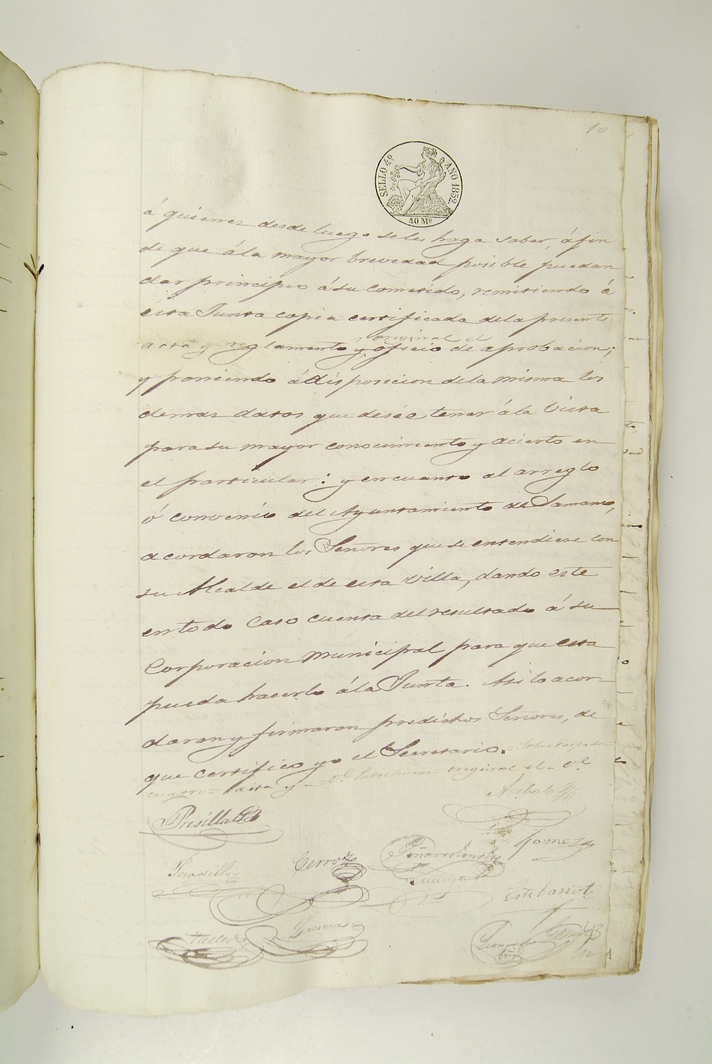 10
SELLO 4º AÑO 1852
40 Ms
á quienes desde luego se les haga saber, á fin
de que á la mayor brevedad posible puedan
dar principio á su cometido, remitiendo á
esta Junta copia certificada de la presente
original el
acta y reglamento y oficio de aprobacion;
y poniendo á disposicion de la misma los
demas datos que desée tener á la vista
para su mayor conocimiento y acierto en
el particular: y en cuanto al arreglo
ó convenio del Ayuntamiento de Samano,
acordaron los Señores que se entendiese con
su Alcalde el de esta villa, dando este
en todo caso cuenta del resultado á su
Corporacion municipal para que esta
pueda hacerlo á la Junta. Asi lo acor-
daron y firmaron predichos Señores, de
que certifico yo el Secretario.
acta y original el
Gomez
Cerro
Garcia